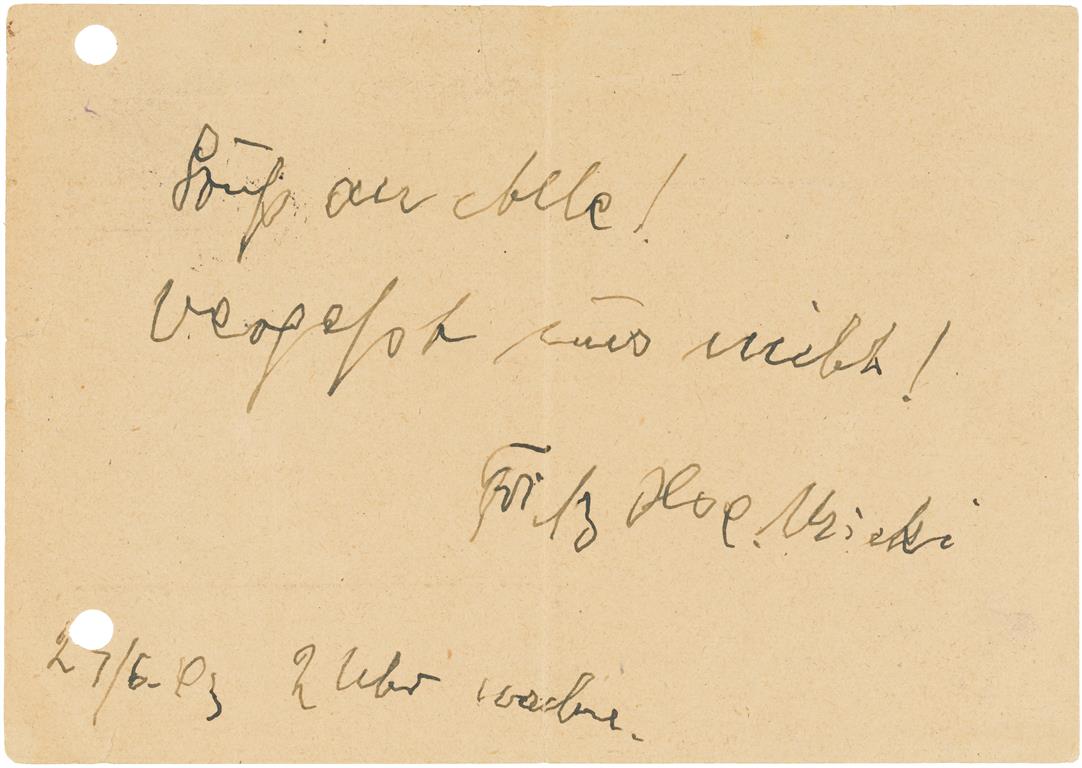 Gruß an alle!
Vergeßt uns nicht!
Fritz
27/6. 2 Uhr nachm.